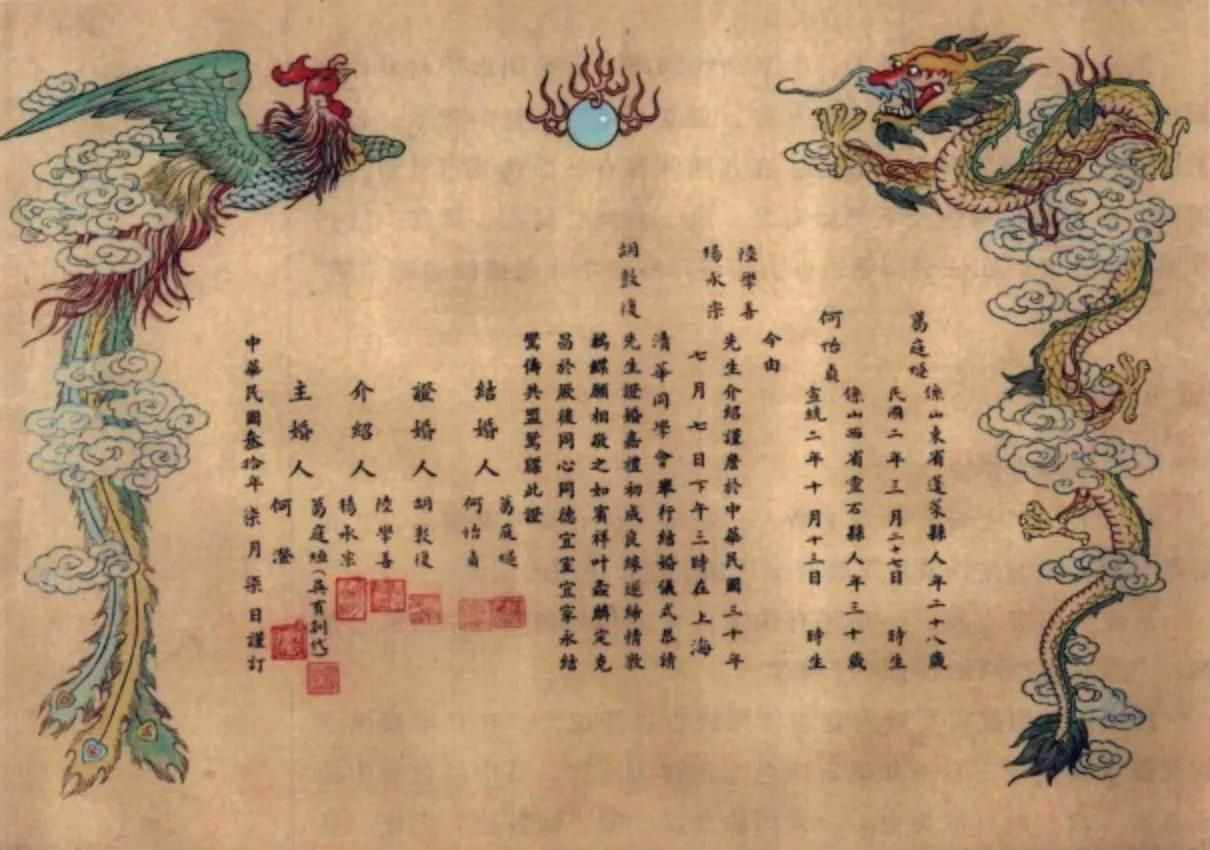 葛庭燧 係山東省蓬萊縣人年二十八歲
民國二年三月二十七日 時生
何怡貞 係山西省靈石縣人年三十歲
宣統二年十月十三日 時生
今由
陸學善
楊永宗 先生介紹謹詹於中華民國三十年
七月七日下午三時在上海
清華同學會舉行結婚儀式恭請
胡敦復 先生證婚嘉禮初成良緣遂締情敦
鶼鰈願相敬之如賓祥叶螽麟定克
昌於厥後同心同德宜室宜家永結
鸞儔共盟鴛牒此證
結婚人 葛庭燧
何怡貞
證婚人 胡敦復
介紹人 陸學善
楊永宗
主婚人 葛庭 (吳有訓代)
何澄
中華民國叁拾年柒月柒日謹訂